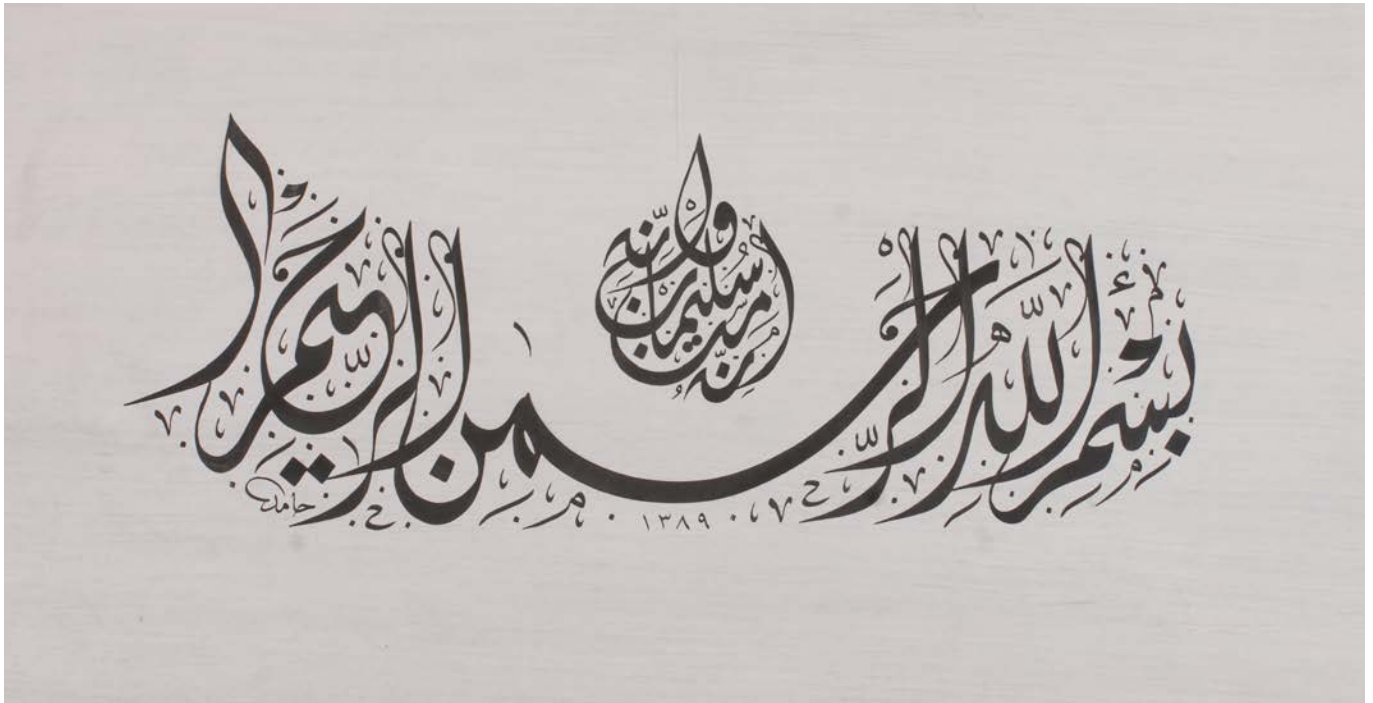 إنه من سليمان وإنه
بسم الله الرحمن الرحيم
حامد
١٣٨٩